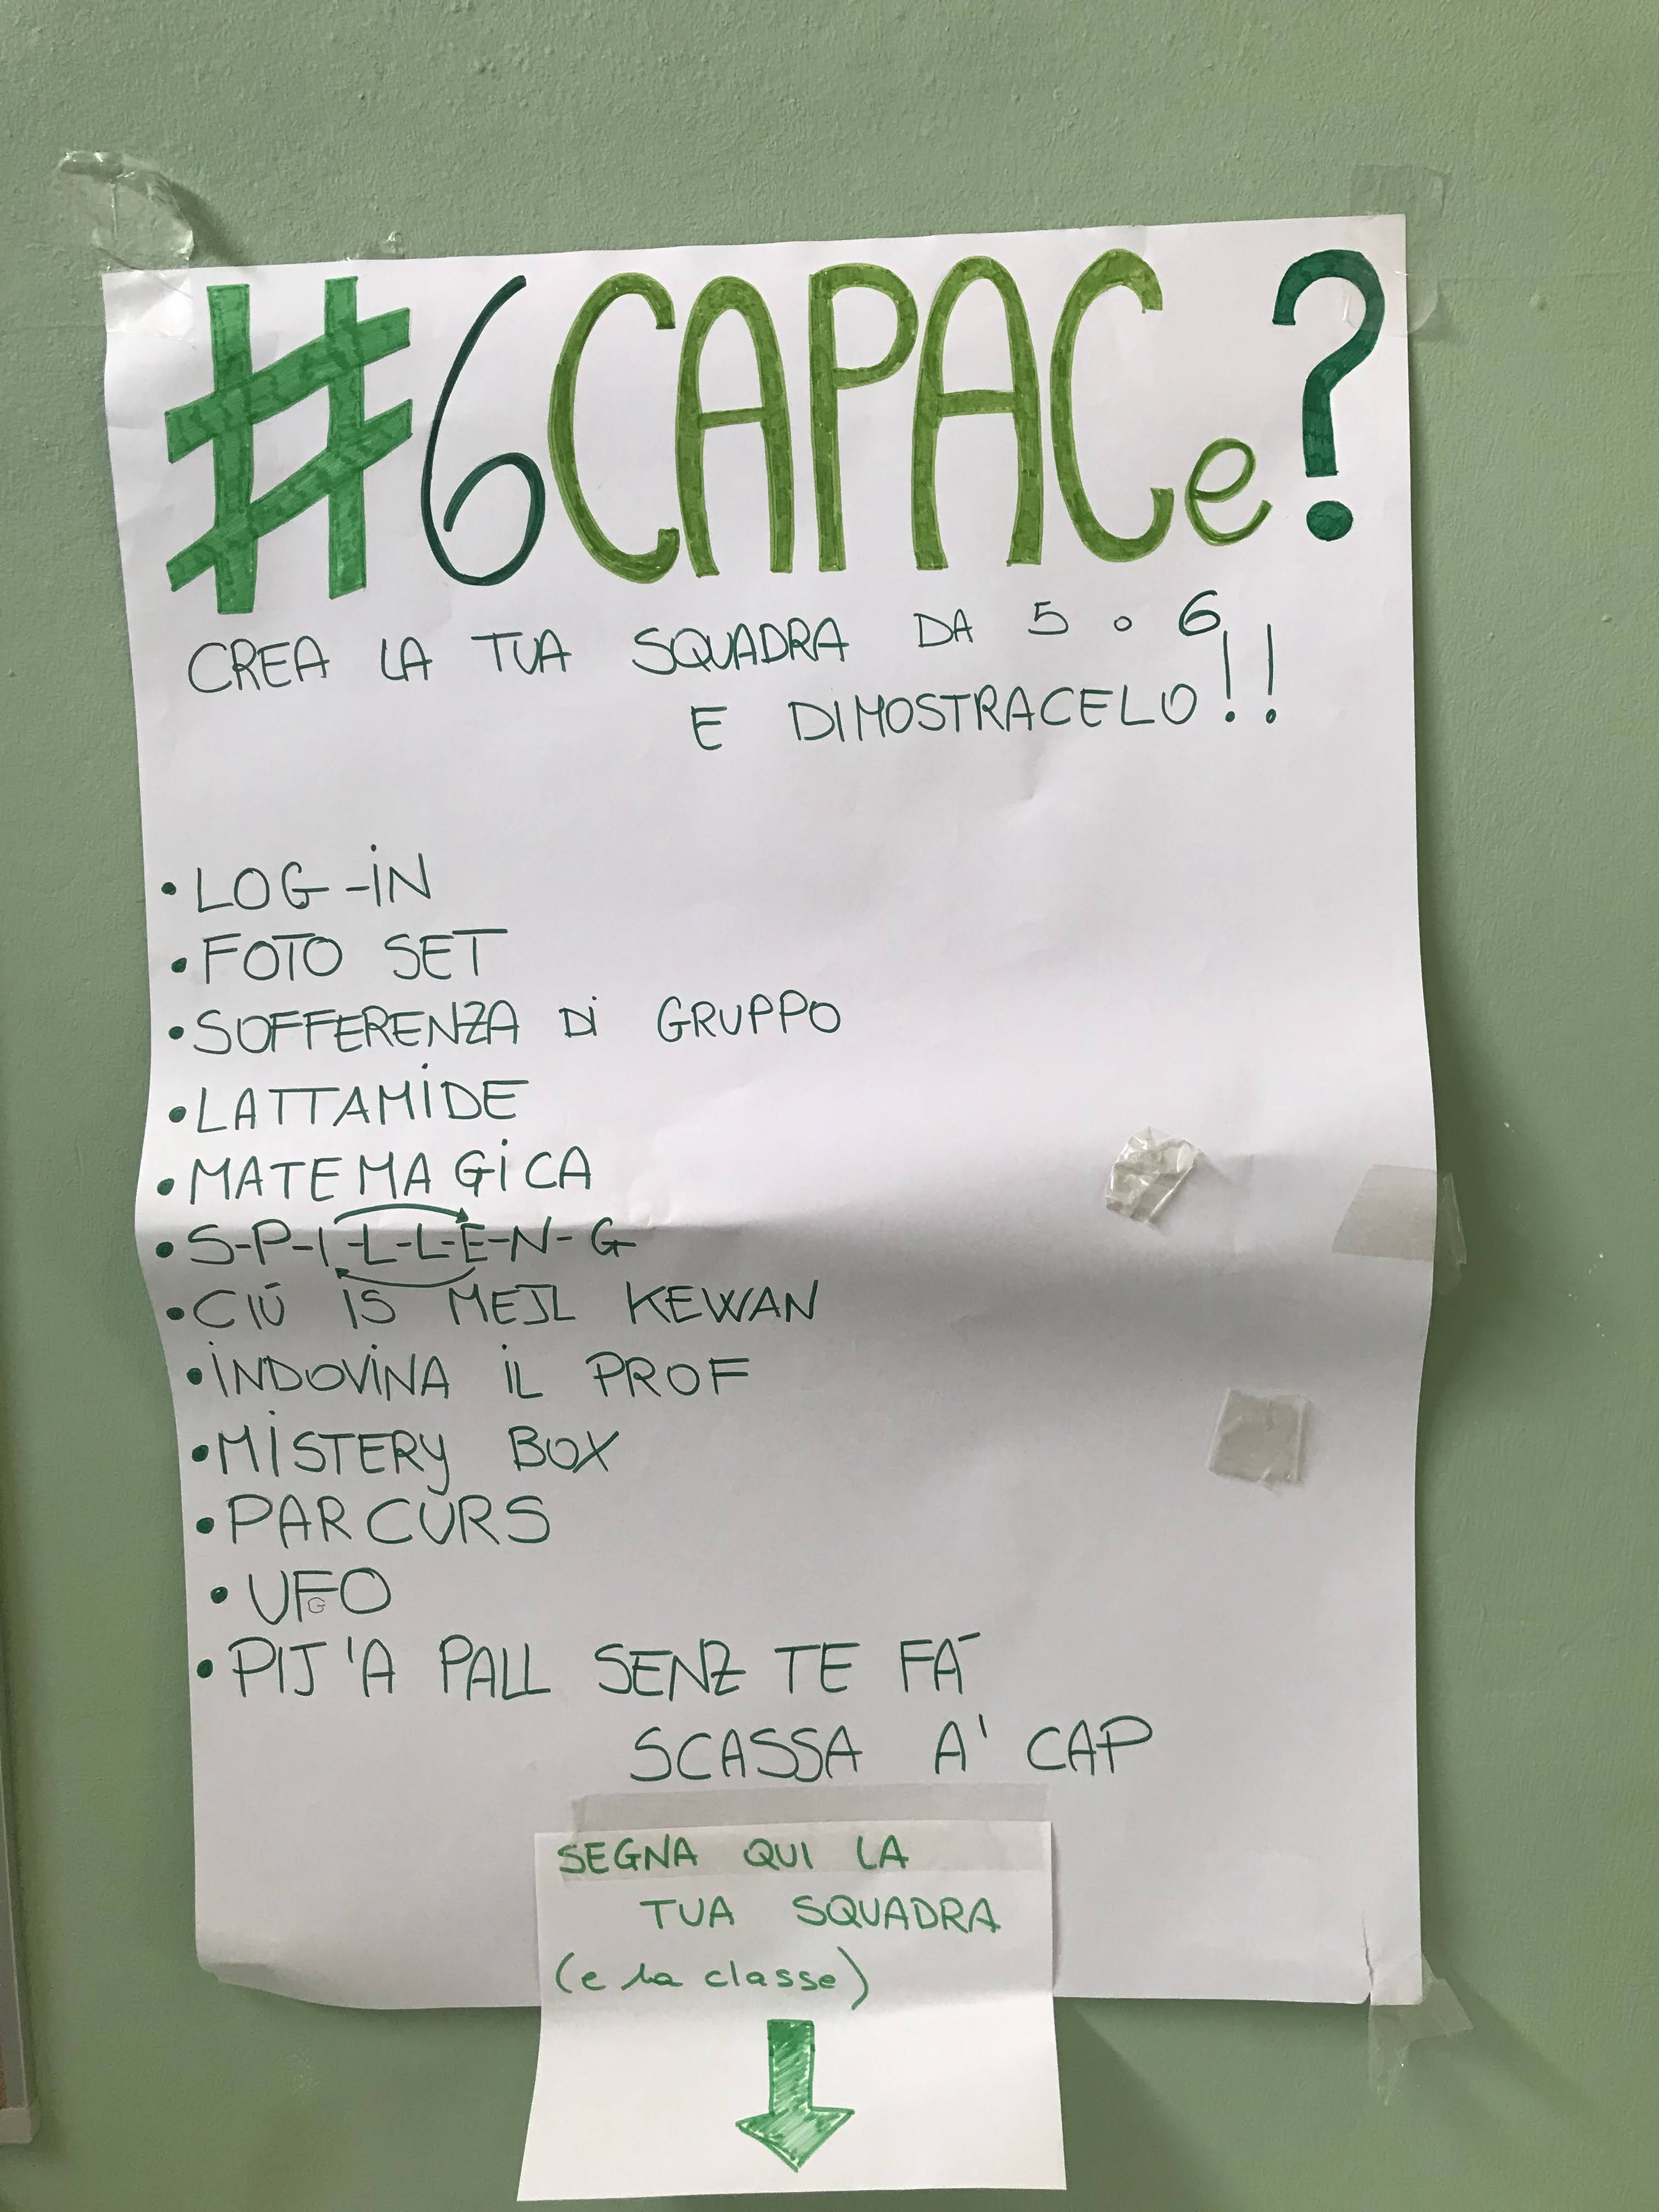 #6CAPACe?
CREA LA TUA SQUADRA DA 5 o 6
E DIMOSTRACELO!!
• LOG-IN
• FOTO SET
• SOFFERENZA Di GRUPPO
• LATTAMIDE
• MATEMAGICA
• S-P-I-L-L-E-N-G
• CIÚ IS MEJL KEWAN
• INDOVINA IL PROF
• MISTERY BOX
• PARCURS
• UFO
G
• PIJ'A PALL SENZ TE FA'
SCASSA A' CAP
SEGNA QUI LA
TUA SQUADRA
(e la classe)